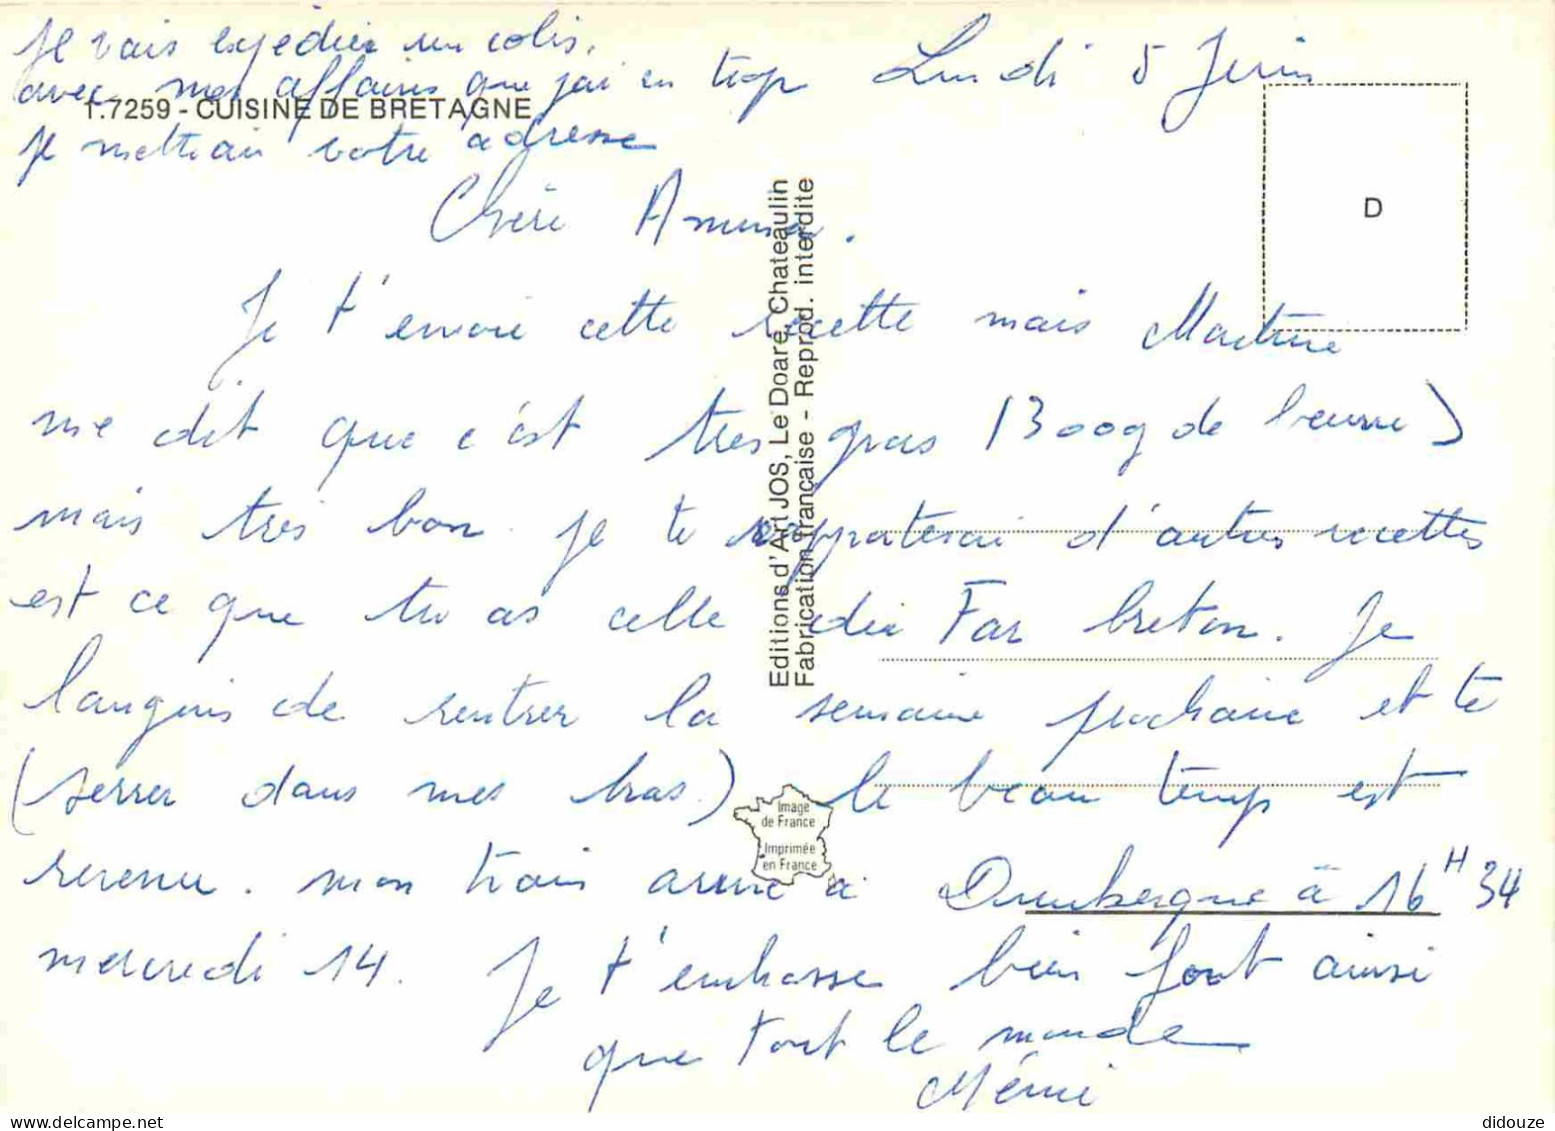 Je vais expédier un colis.
avec mes affaires que j'ai en trop
Lundi 5 Juin
T.7259 - CUISINE DE BRETAGNE
Je mettrai votre adresse
D
Chère
Je t'envoie cette recette mais Martine
me dit que c'est très gras (300g de beurre)
mais très bon. Je te rapporterai d'autres recettes
est ce que tu as celle du Far breton. Je
languis de rentrer la semaine prochaine et te
(serrer dans mes bras.) le beau temps est
revenu. mon train arrive à Dunkerque à 16H34
mercredi 14. Je t'embrasse bien fort ainsi
que tout le monde
Mémé
Editions d'Art JOS, Le Doaré, Chateaulin
Fabrication française - Reprod. interdite
Image
de France
Imprimée
en France
didouze